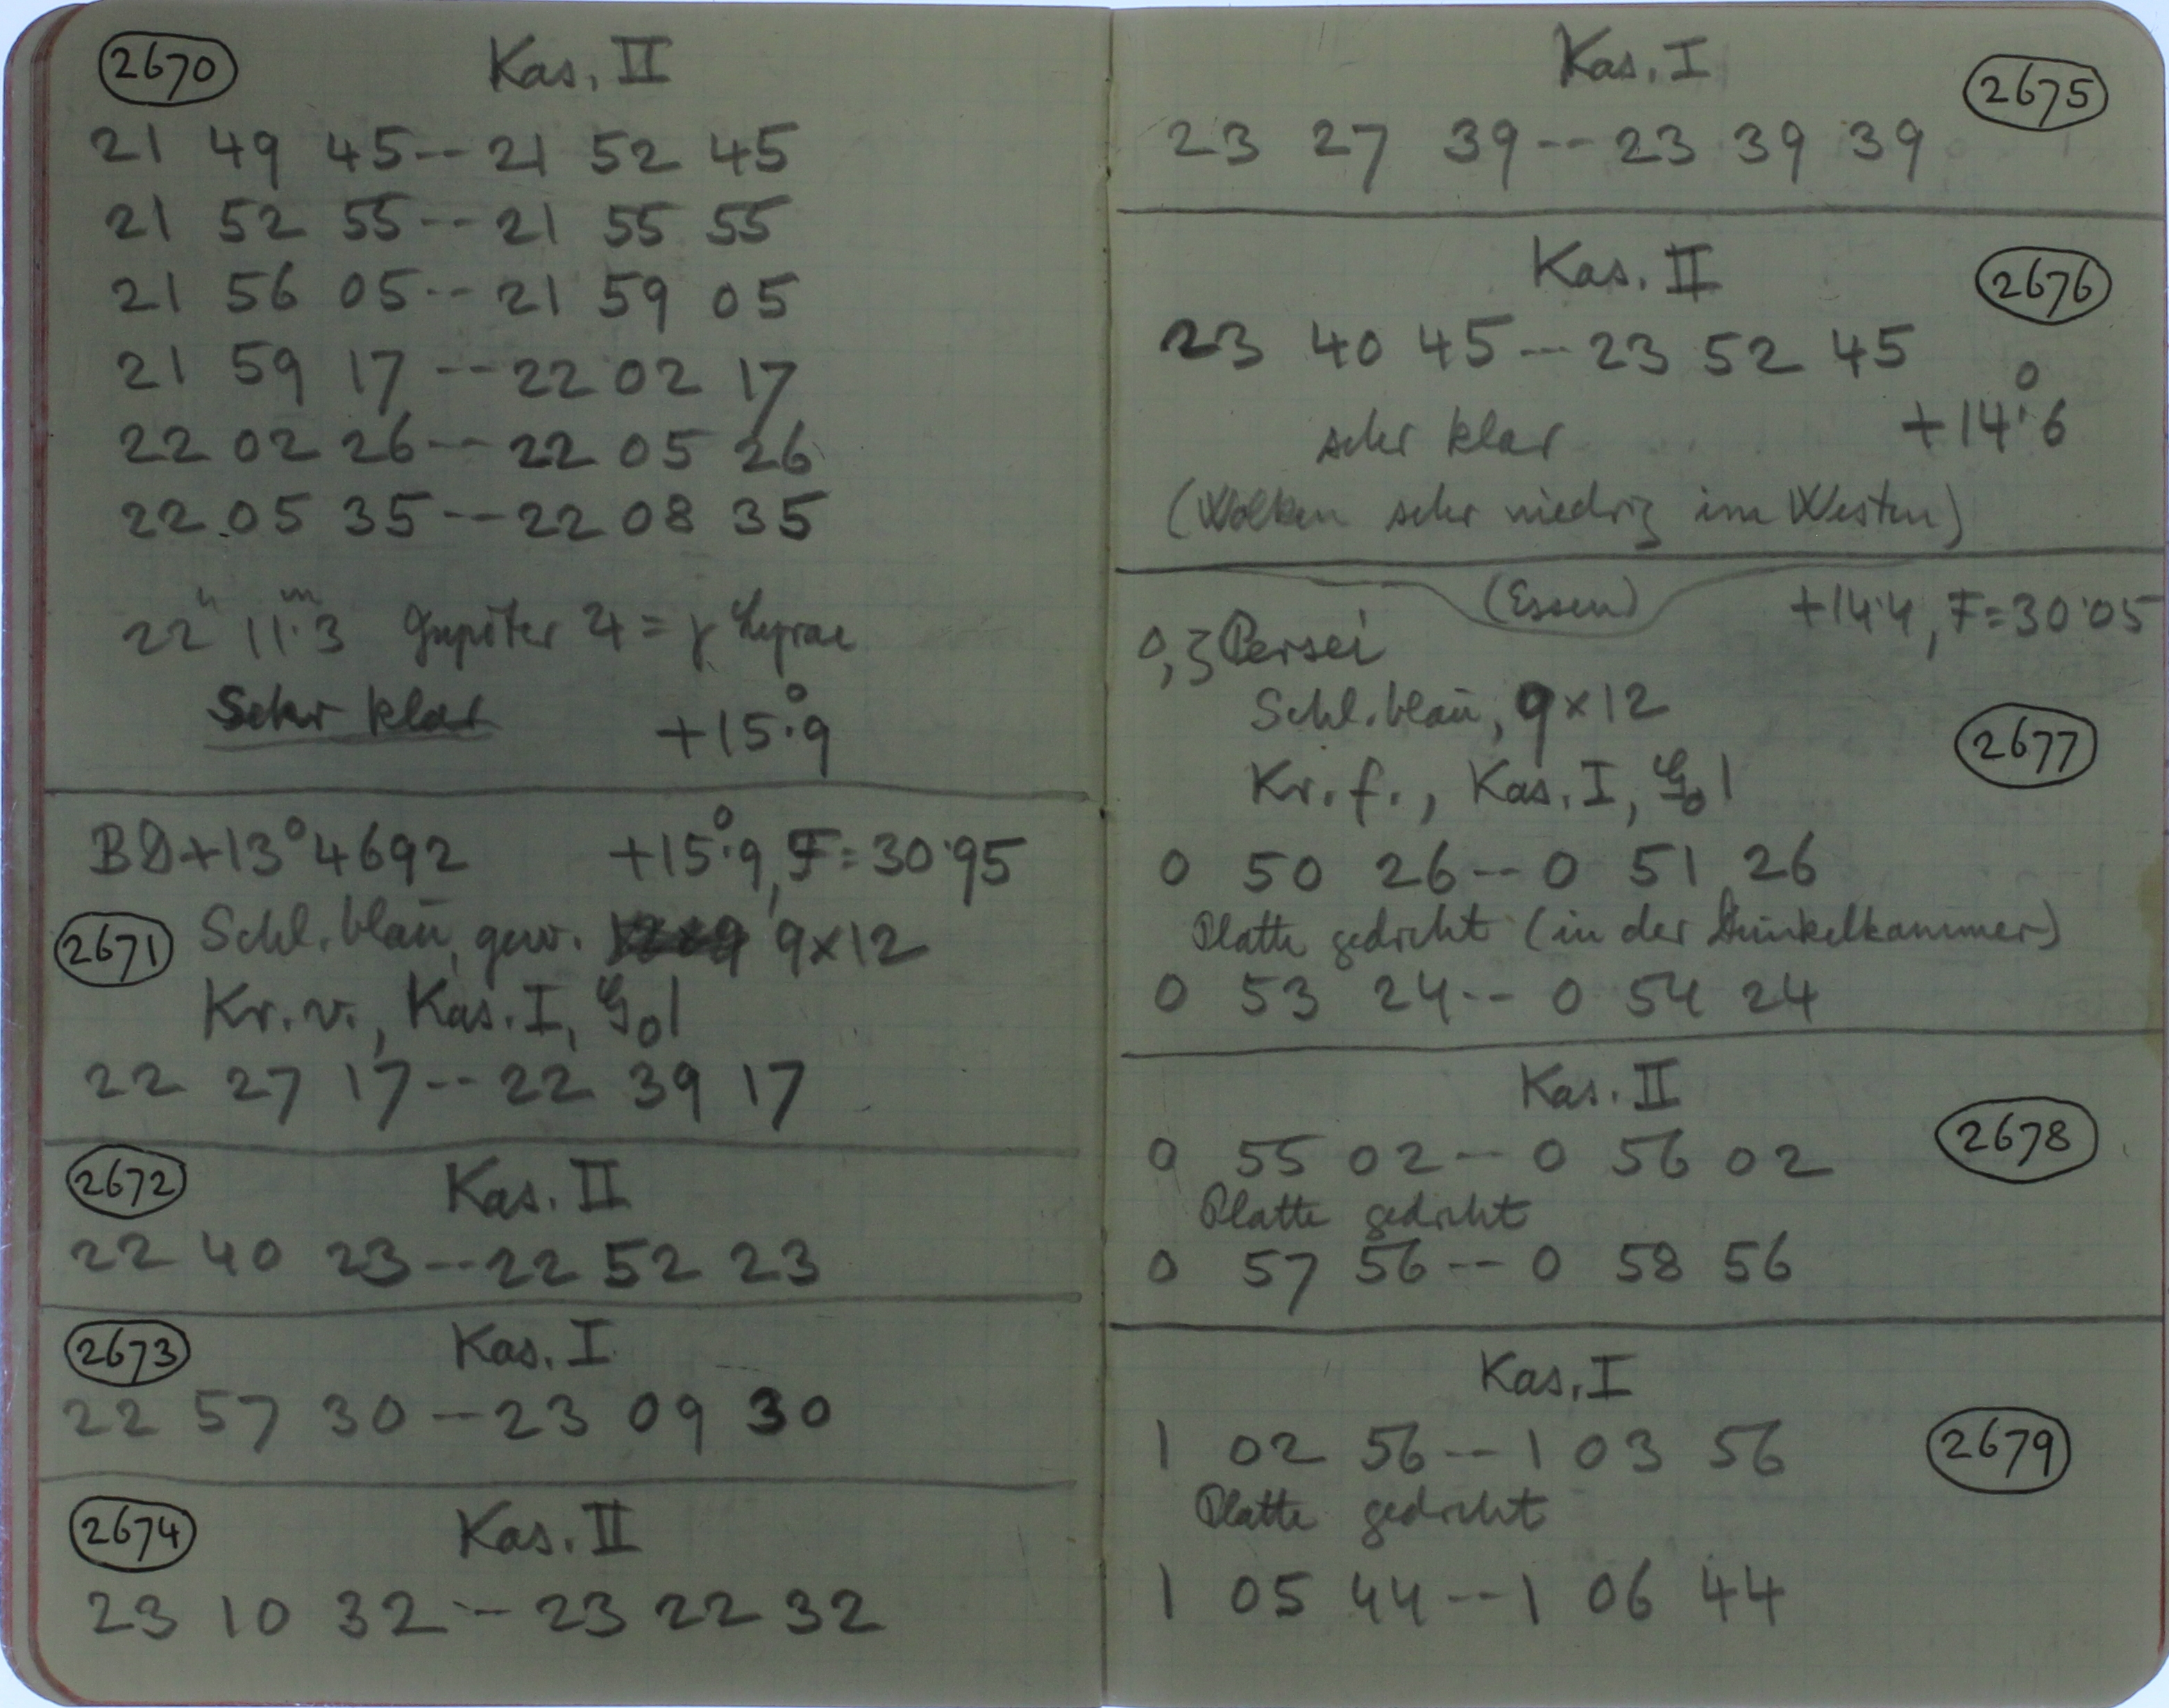 2670 Kas. II
21 49 45--21 52 45
21 52 55--21 55 55
21 56 05--21 59 05
21 59 17--22 02 17
22 02 26--22 05 26
22 05 35--22 08 35
22ʰ 11ᵐ.3 Jupiter ♃ = γ Lyrae
Sehr klar +15°.9
BD+13°4692 +15°.9, F=30.95
2671 Schl. blau, gew. 9x12
Kr. v., Kas. I, G₀1
22 27 17--22 39 17
2672 Kas. II
22 40 23--22 52 23
2673 Kas. I
22 57 30--23 09 30
2674 Kas. II
23 10 32--23 22 32
Kas. I 2675
23 27 39--23 39 39
Kas. II 2676
23 40 45--23 52 45
sehr klar +14°.6
(Wolken sehr niedrig im Westen)
(Essen) +14.4, F=30.05
ο, ζ Persei
Schl. blau, 9x12
Kr. f., Kas. I, G₀1 2677
0 50 26--0 51 26
Platte gedreht (in der Dunkelkammer)
0 53 24--0 54 24
Kas. II
0 55 02--0 56 02 2678
Platte gedreht
0 57 56--0 58 56
Kas. I
1 02 56--1 03 56 2679
Platte gedreht
1 05 44--1 06 44